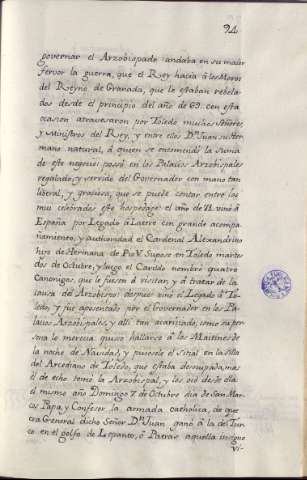 94
governar el Arzobispado andaba en su maior
fervor la guerra, que el Rey hacia à los Moros
del Reyno de Granada, que le estaban rebela-
dos desde el principio del año de 69. con esta
ocasion atravesaron por Toledo muchos Señores,
y Ministros del Rey, y entre ellos Dn Juan su Her
mano natural, à quien se encomendò la suma
de este negocio: posò en los Palacios Arzobispales
regalado, y servido del Governador con mano tan
liberal, y graciosa, que se puede contar entre los
mui celebrados este hospedage: el año de 71. vino à
España por Legado à Latere con grande acompa-
ñamiento, y authoridad el Cardenal Alexandrino
hijo de Hermana de Pio V. Supose en Toledo martes
dos de Octubre, y luego el Cavildo nombrò quatro
Canonigos, que le fuesen à visitar, y à tratar de la
causa del Arzobispo: despues vino el Legado à To-
ledo, y fue aposentado por el Governador en los Pa-
lacios Arzobispales, y alli tan acariciado, como su per-
sona lo merecia quiso hallarse à los Maitines de
la noche de Navidad, y pusosele el sitial en la silla
del Arcediano de Toledo, que estaba desocupada, mas
el de echo tenia la Arzobispal, y les oiò desde ella
el mismo año Domingo 7. de Octubre dia de San Mar-
cos Papa, y Confesor la armada catholica, de que
era General dicho Señor Dn Juan ganò à la del Tur-
co en el golfo de Lepanto, ò Patras aquella insigne
vi-